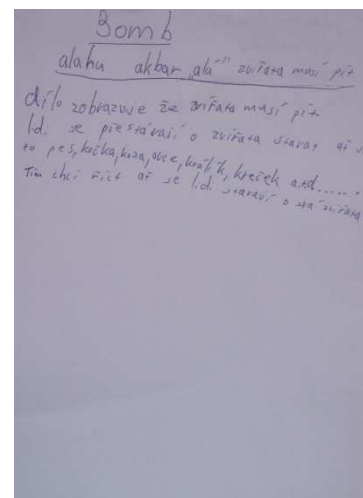 Bomb
alahu akbar „alá“ zvířata musí pít
dílo zobrazuje že zvířata musí pít
lidi se přestávají o zvířata starat ať
to pes, kočka, koza, ovce, králík, křeček atd.....
Tím chci říct ať se lidi starají o svá zvířata